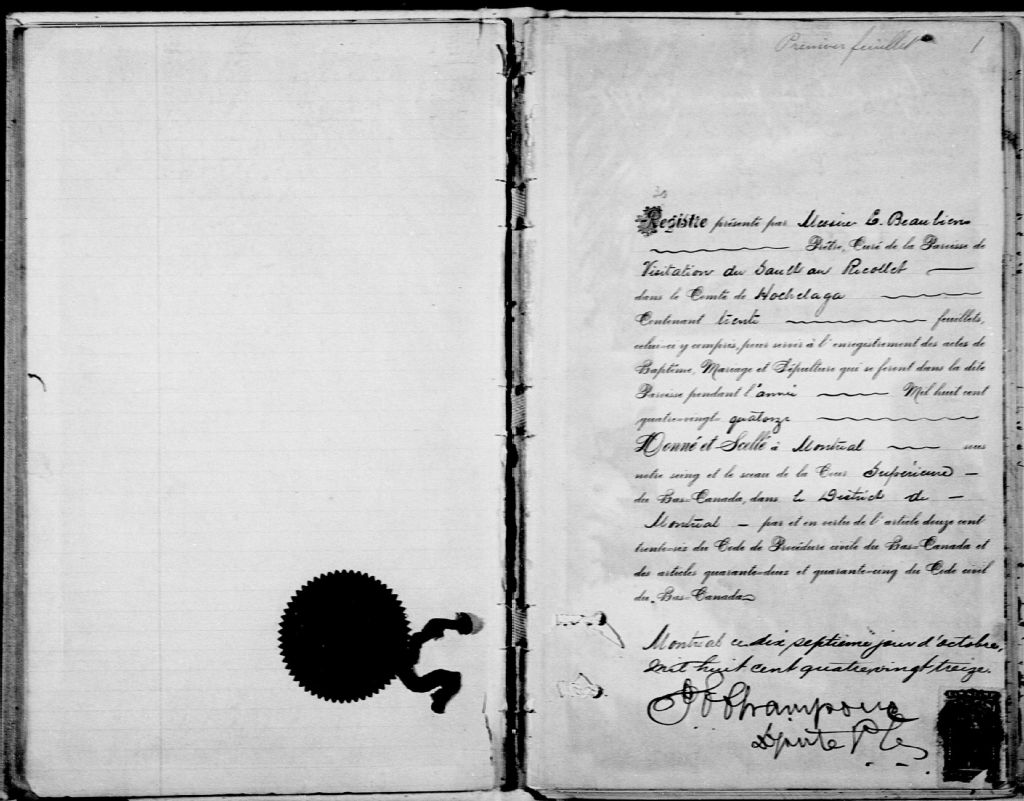 Premier feuillet 1
30
Registre présenté par Messire E. Beaulieu
Prêtre, Curé de la Paroisse de
Visitation du Sault au Récollet
dans le Comté de Hochelaga
Contenant trente feuillets,
celui-ci y compris, pour servir à l'enregistrement des actes de
Baptême, Mariage et Sépulture qui se feront dans la dite
Paroisse pendant l'année Mil huit cent
quatre-vingt- quatorze
Donné et Scellé à Montréal sous
notre seing et le sceau de la Cour Supérieure
du Bas-Canada, dans le District de
Montréal par et en vertu de l'article douze cent
trente-six du Code de Procédure civile du Bas-Canada et
des articles quarante-deux et quarante-cinq du Code civil
du Bas-Canada
Montréal ce dix septième jour d'octobre,
Mil huit cent quatre vingt treize.
Champoux
Députe P.